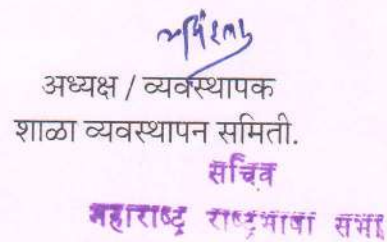 अध्यक्ष / व्यवस्थापक
शाळा व्यवस्थापन समिती.
सचिव
महाराष्ट्र राष्ट्रभाषा सभा